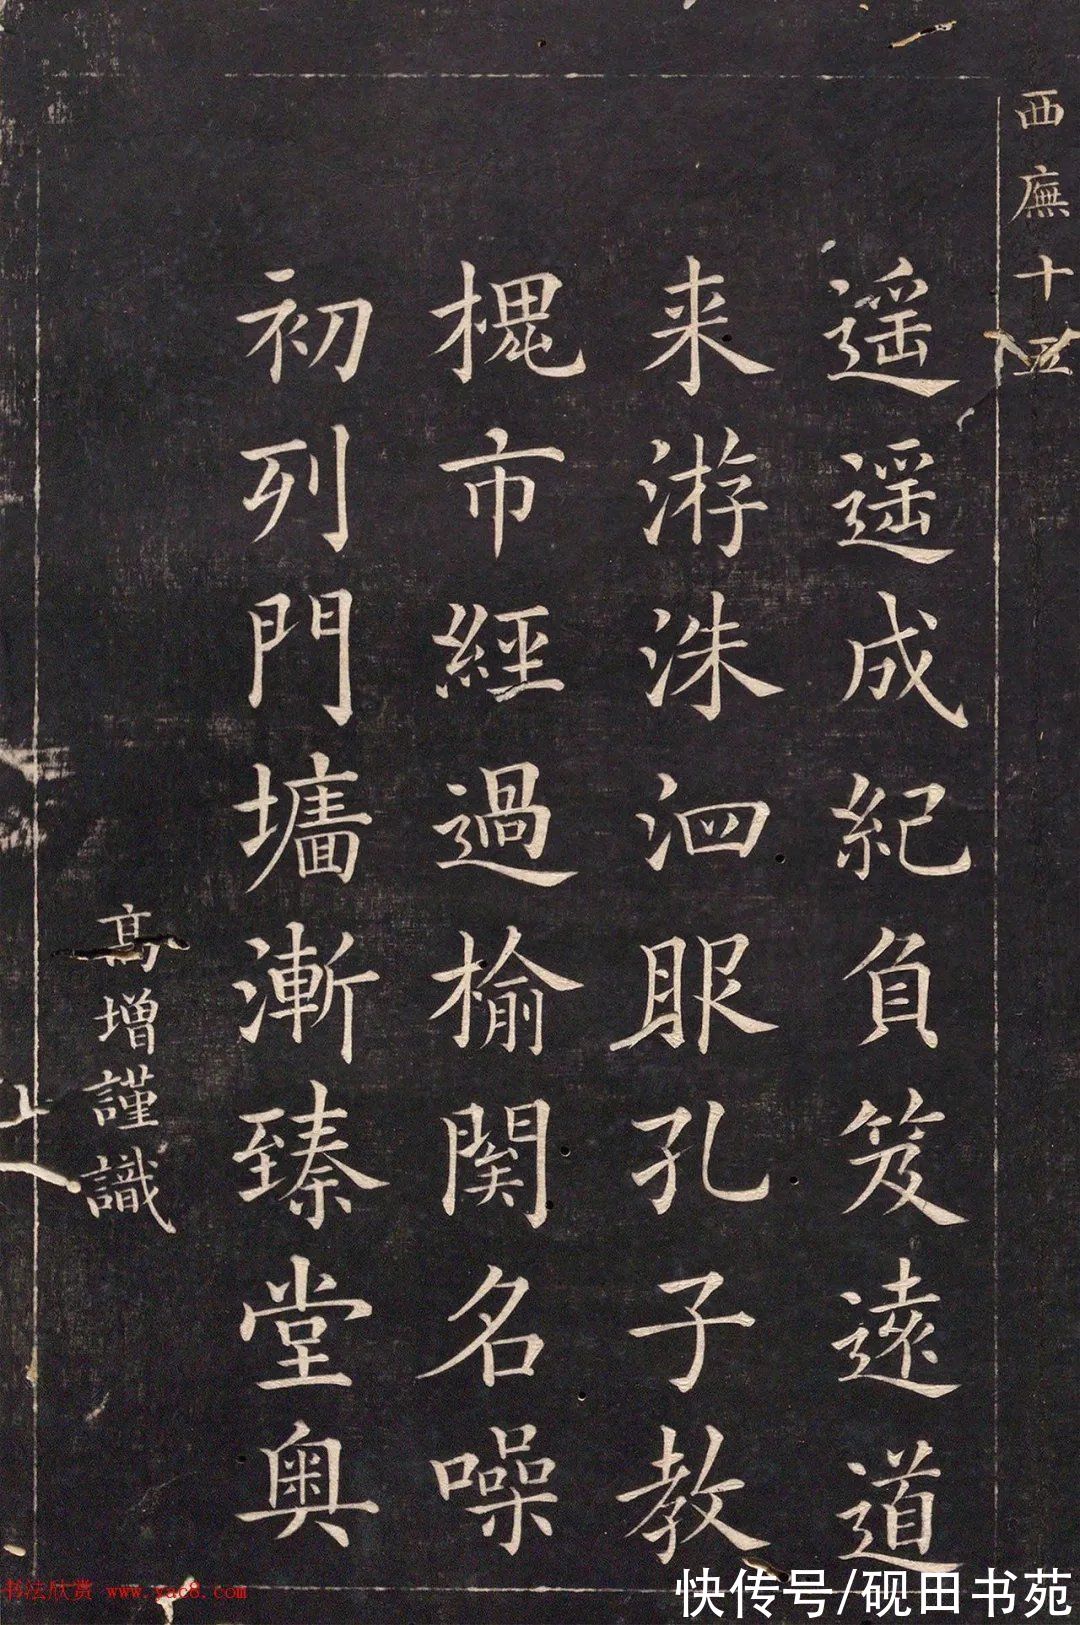 西廡十五
遥遥成紀負笈遠道
来游洙泗服孔子教
槐市經過榆関名噪
初列門墻漸臻堂奥
高增謹識
书法欣赏 www.yac8.com
快传号/砚田书苑